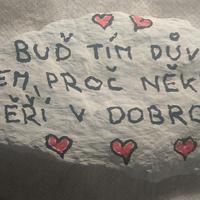 BUĎ TÍM DŮV
EM, PROČ NĚK
ĚŘÍ V DOBRO